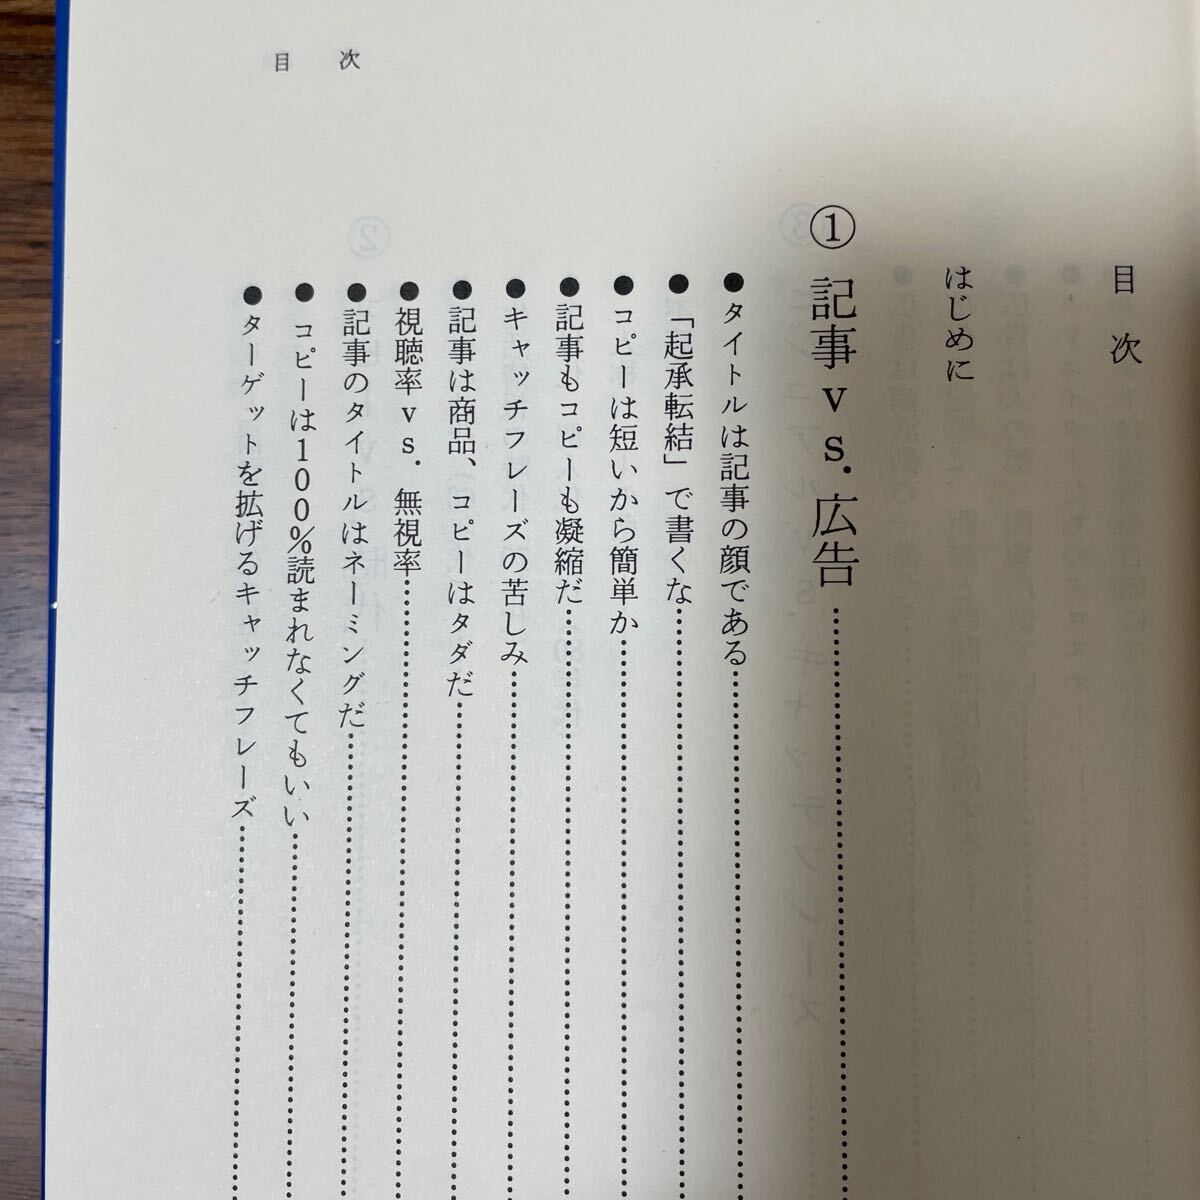 目次
目次
はじめに
① 記事vs.広告
●タイトルは記事の顔である
●「起承転結」で書くな
●コピーは短いから簡単か
●記事もコピーも凝縮だ
●キャッチフレーズの苦しみ
●記事は商品、コピーはタダだ
●視聴率vs.無視率
●記事のタイトルはネーミングだ
●コピーは100%読まれなくてもいい
●ターゲットを拡げるキャッチフレーズ